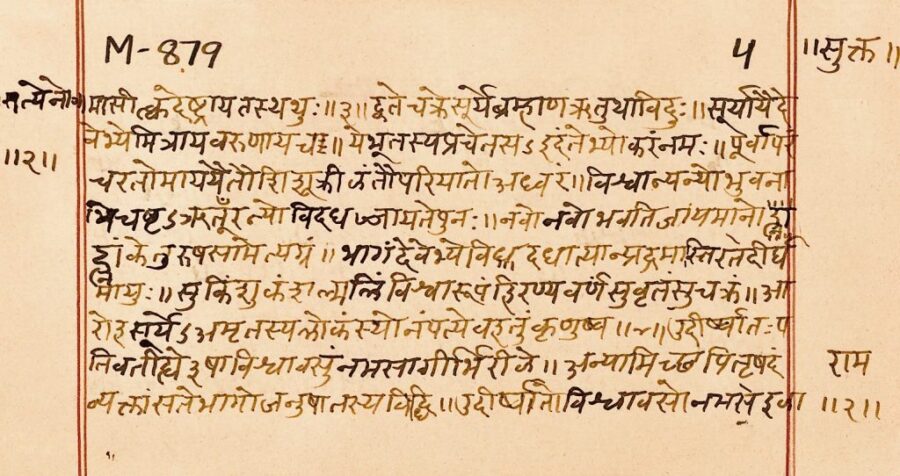 M-879 4 ॥सुक्त॥
मासीत्क्वदेष्ट्रायतस्थथुः॥३॥द्वेतेचक्रेसूर्येब्रम्हाणऋतुथाविदुः॥सूर्यायैदे
वेभ्येमित्रायवरुणायच॥येभूतस्यप्रचेतसऽइदंतेभ्योकरंनमः॥पूर्वापरं
॥२॥
चरतोमाययैतौशिशूक्रीळंतौपरियातोअध्वरं॥विश्वान्यन्योभुवना
भिचष्टऽऋतूँरन्योविदधज्जायतेपुनः॥नवोनवोभवतिजायमानो
ह्नांकेतुरुषसामेत्यग्रं॥भागंदेवेभ्यो
मायुः॥सुकिंशुकंशल्मलिंविश्वारूपंहिरण्यवर्णंसुवृतंसुचक्रं॥आ
रोहसूर्येऽअमृतस्यलोकंस्योनंपत्येवहतुंकृणुष्व॥४॥उदीर्ष्वातःप
तिवतीह्ये३षाविश्वावसुंनमसागीर्भिरीळे॥अन्यामिच्छपितृषदं राम
व्यक्तांसतेभागोजनुषातस्यविद्धि॥उदीर्ष्वातोविश्वावसोनमसेळा ॥२॥